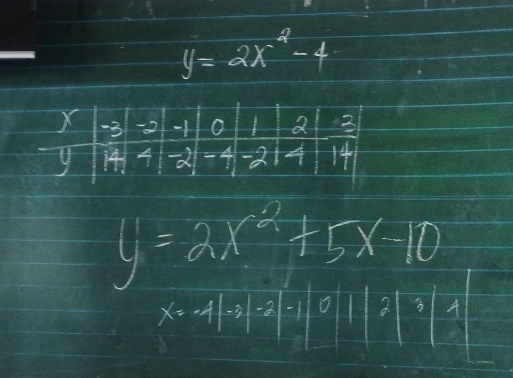 y = 2x² - 4
x | -3 | -2 | -1 | 0 | 1 | 2 | 3
y | 14 | 4 | -2 | -4 | -2 | 4 | 14
y = 2x² + 5x - 10
x = -4 | -3 | -2 | -1 | 0 | 1 | 2 | 3 | 4